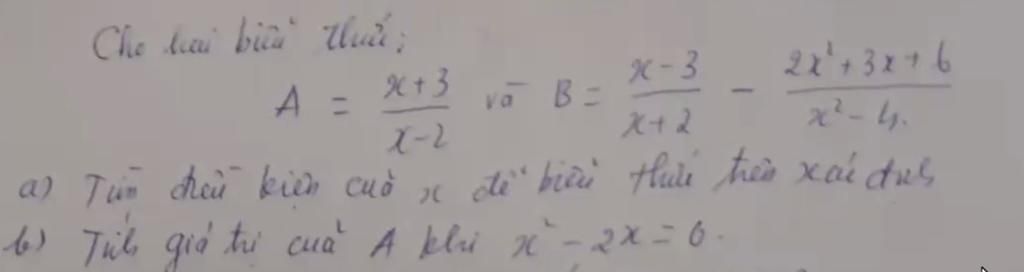 Cho hai biểu thức:
A = \frac{x+3}{x-2} và B = \frac{x-3}{x+2} - \frac{2x²+3x+6}{x²-4}.
a) Tìm điều kiện của x để biểu thức trên xác định
b) Tính giá trị của A khi x² - 2x = 0.